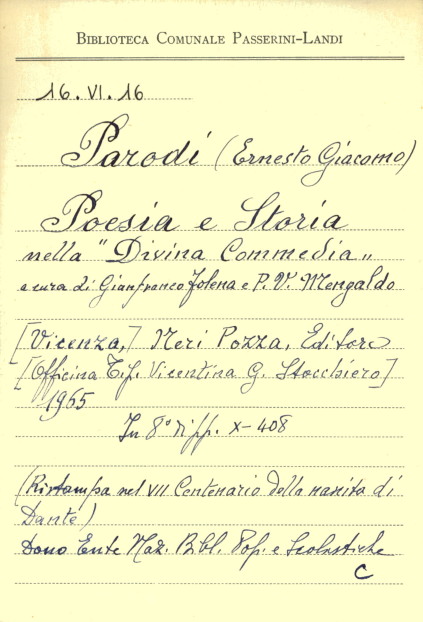 BIBLIOTECA COMUNALE PASSERINI-LANDI
16.VI.16
Parodi (Ernesto Giacomo)
Poesia e Storia
nella "Divina Commedia„
a cura di Gianfranco Folena e P. V. Mengaldo
[Vicenza,] Neri Pozza, Editore
[Officina Tip. Vicentina G. Stocchiero]
1965
In 8° di pp. X-408
(Ristampa nel VII Centenario della nascita di
Dante)
Dono Ente Naz. Bibl. Pop. e Scolastiche
C